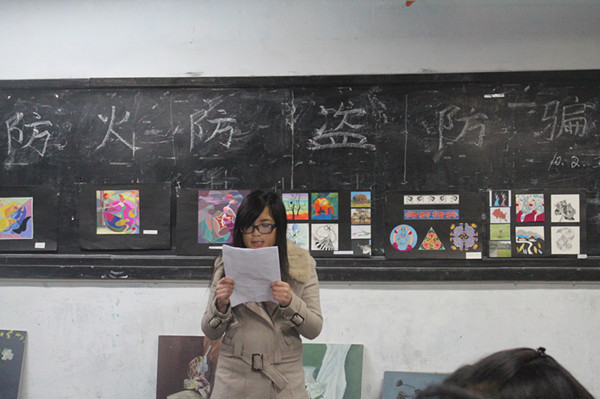 防火防盗防骗
10.2